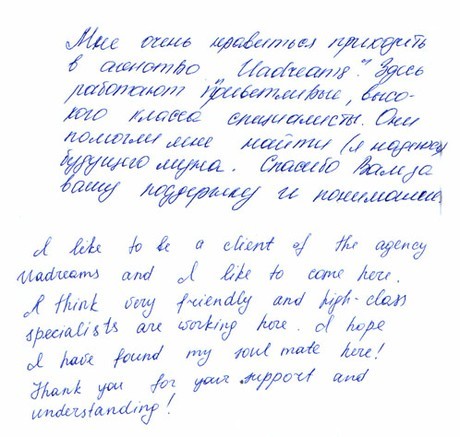 Мне очень нравиться приходить
в агенство "Uadreams". Здесь
работают приветливые, высо-
кого класса специалисты. Они
помогли мне найти (я надеюсь)
будущего мужа. Спасибо Вам за
вашу поддержку и понимание
I like to be a client of the agency
Uadreams and I like to come here.
I think very friendly and high-class
specialists are working here. I hope
I have found my soul mate here!
Thank you for your support and
understanding!